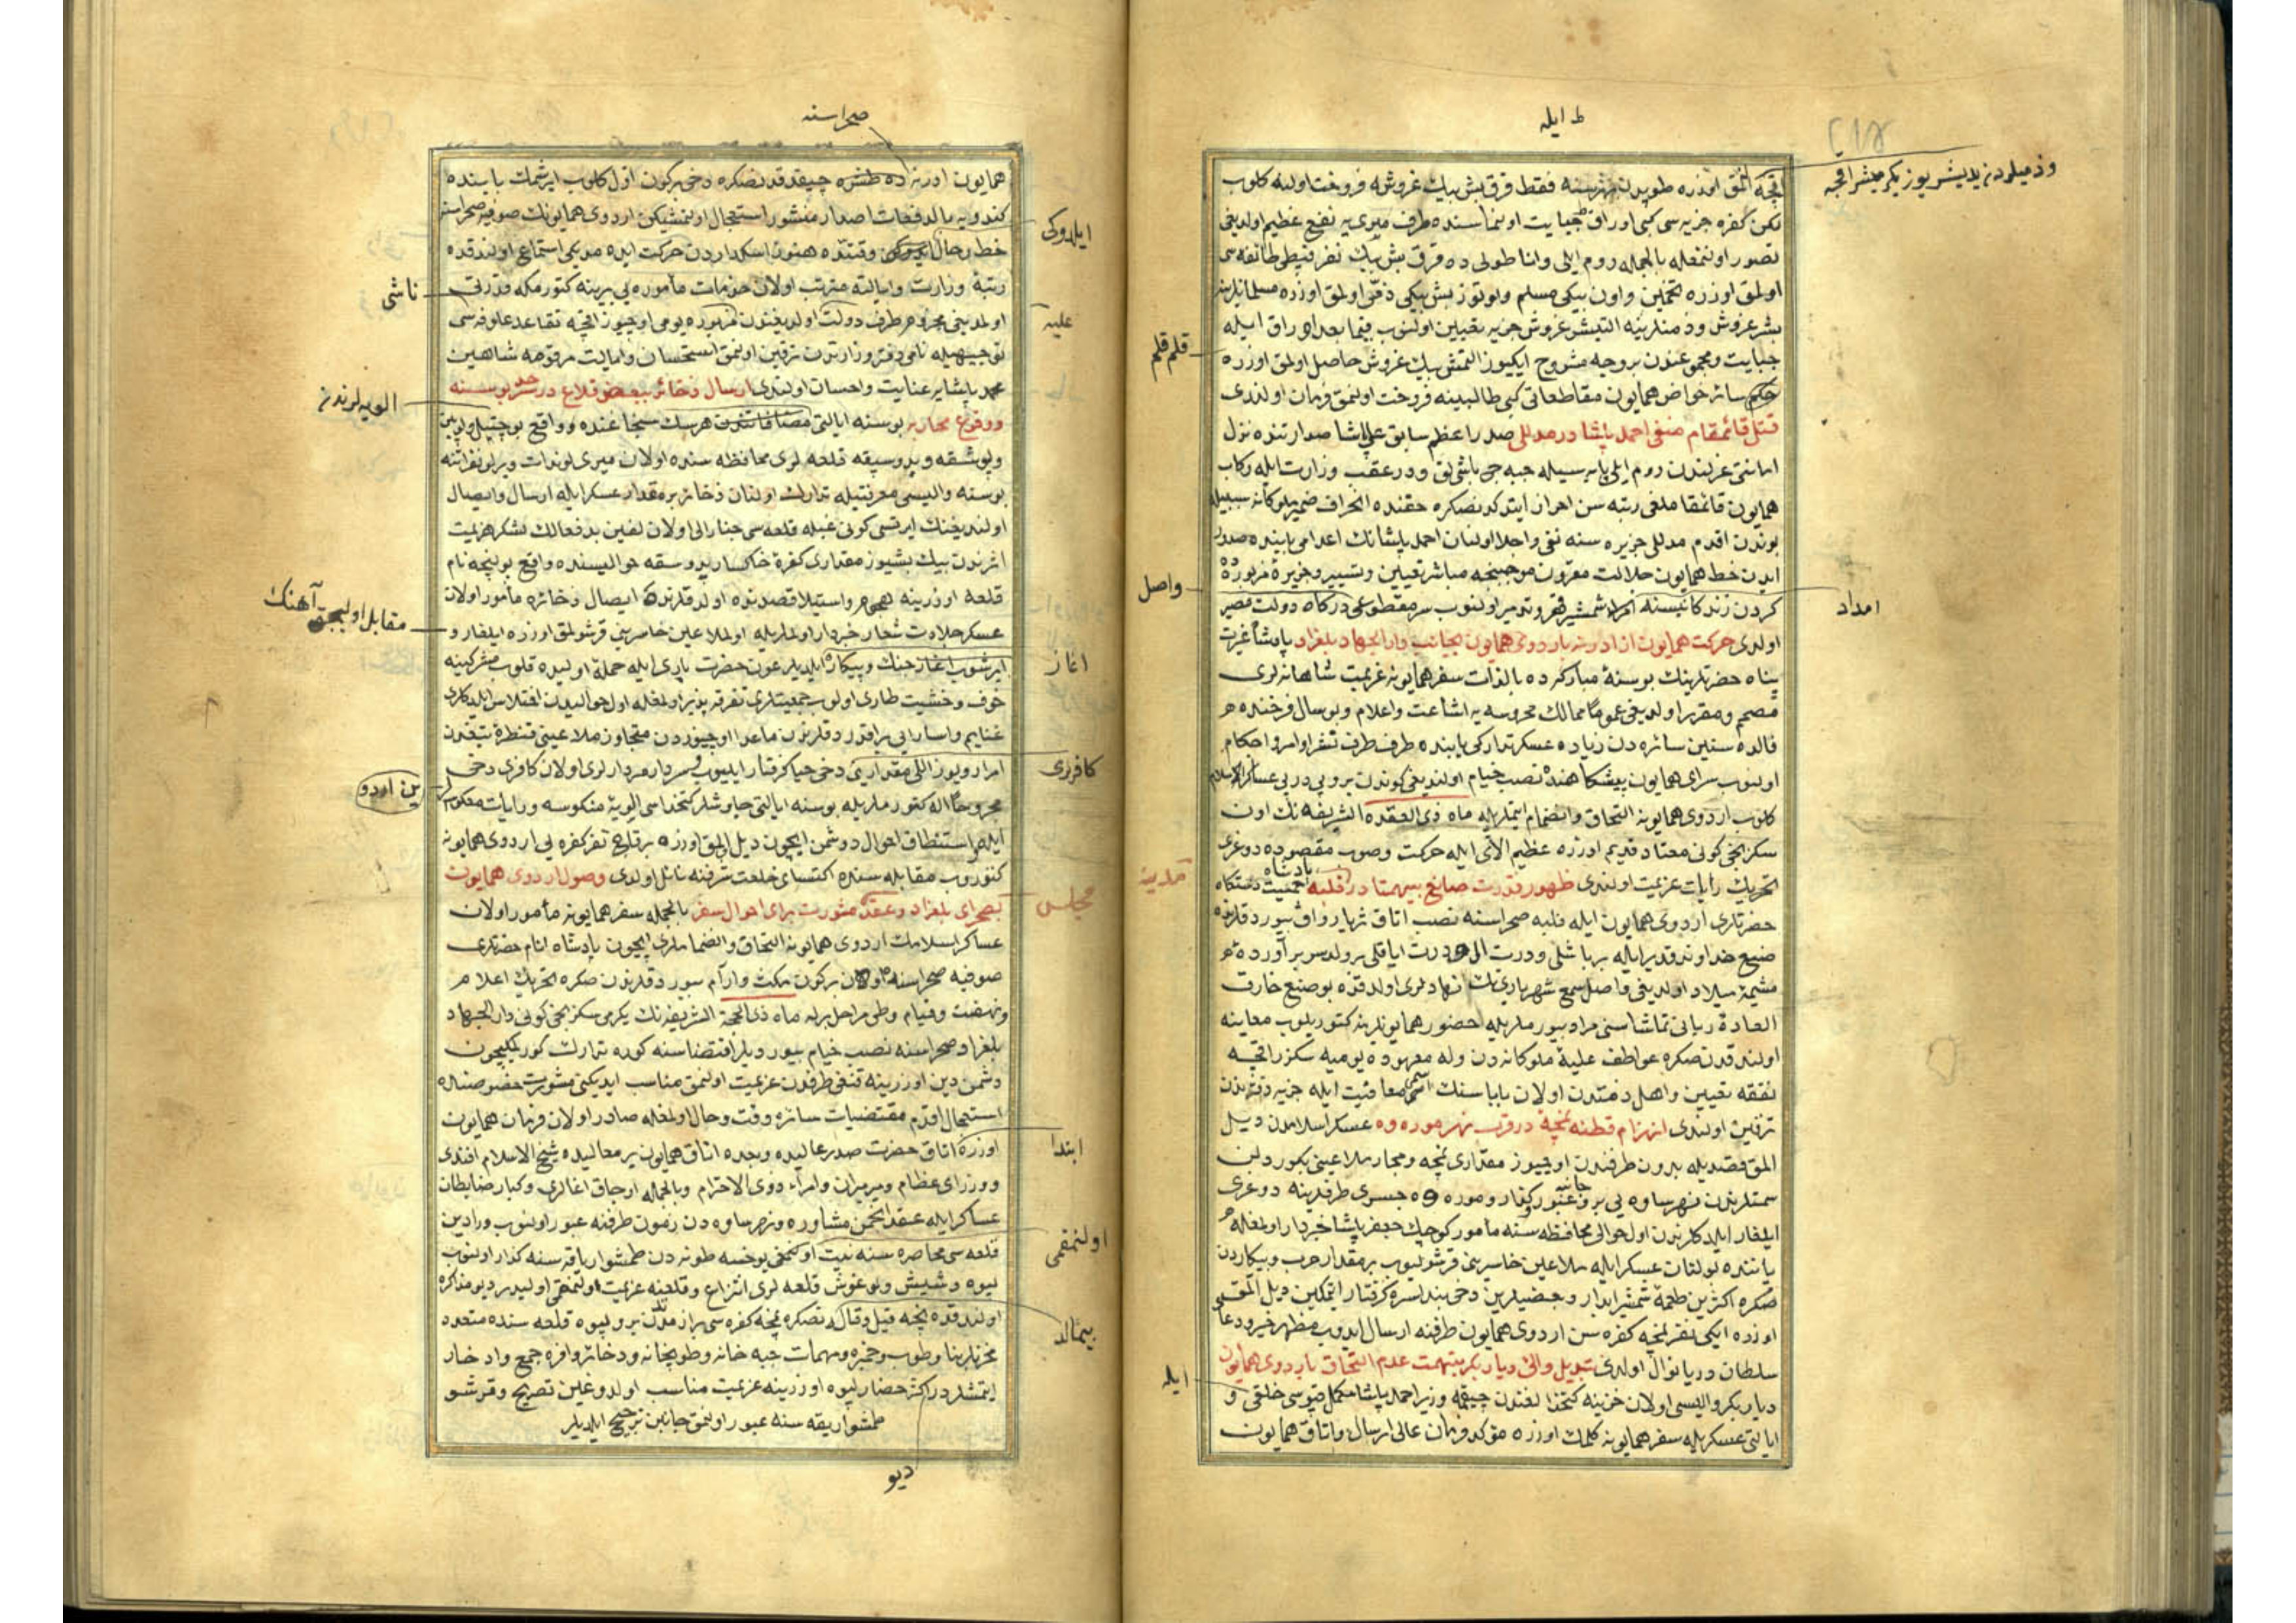 ط ایله
وذمیلردن یدیشر یوز یکرمیشر اقچه
اقچه المق اوزره طوپدن فقط قرق بش بیك غروشه فروخت اولنه کلوب
لکن کفره جزیه سی کبی اوراق جبایت اولنماسنده طرف میری یه نفع عظیم اولدیغی
تصور اولنمغله بالجمله روم ایلی واناطولی ده قرق بش بیك نفر قبطی طائفه سی
اولمق اوزره تخمین واون بیکی مسلم واوتوز بش بیکی ذمی اولمق اوزره مسلمانلرینه
بشر غروش وذمیلرینه التیشر غروش جزیه تعیین اولنوب فیما بعد اوراق ایله
قلم قلم
جبایت ومجموعندن بر وجه مشروح ایکیوز التمش بیك غروش حاصل اولمق اوزره
سائر خواص همایون مقاطعاتی کبی طالبینه فروخت اولنمق فرمان اولندی
قتل قائمقام منفی احمد پاشا در مدللی صدر اعظم سابق علی پاشا صدارتنده نزل
امانتی عزلندن روم ایلی پایه سیله جبه جی باشیلق ودر عقب وزارت ایله رکاب
همایون قائمقاملغی رتبه سن احراز ایتدکدنصکره حقنده انحراف ضمیر ملوکانه سببیله
بوندن اقدم مدللی جزیره سنه نفی واجلا اولنان احمد پاشانك اعدامی بابنده صدور
ایدن خط همایون جلالت مقرون موجبنجه مباشر تعیین وتسییر وجزیرهٔ مزبوره ده
واصل
امداد
کردن زندکانیسنه شمشیر قهر وتدمیر اولنوب سر مقطوعی درکاه دولت مصیر
اولدی حرکت همایون از ادرنه با اردوی همایون بجانب دار الجهاد بلغراد پادشاه غیرت
پناه حضرتلرینك بو سنهٔ مبارکه ده بالذات سفر همایونه عزیمت شاهانه لری
مصمم ومقرر اولدیغی عموما ممالك محروسه یه اشاعت واعلام وبو سال فرخنده
فالده سنین سائره دن زیاده عسکر تدارکی بابنده طرف طرف تنفر اوامر واحکام
اولنوب سرای همایون پیشکاهنده نصب خیام اولندیغی کوندن برو پی در پی عساکر اسلام
کلوب اردوی همایونه التحاق وانضمام ایتملریله ماه ذی القعده الشریفه نك اون
سکزنجی کونی معتاد قدیم اوزره عظیم الای ایله حرکت وصوب مقصوده دوغری
تحریك رایات عزیمت اولندی ظهور قدرت صانع بیهمتا در فلبه پادشاه جمعیت دستکاه
مدینهٔ
حضرتلری اردوی همایون ایله فلبه صحراسنه نصب اتاق ثریا رواق بیوردقلرنده
صنع خداوند قدیر ایله بر باشلی ودرت الی ودرت ایاقلی بر ولد سر بر آوردهٔ
مشیمهٔ میلاد اولدیغی واصل سمع شهریاری اولدقده بو صنع خارق
العادهٔ ربانی تماشاسنی مراد بیورملریله حضور همایونلرینه کتوریلوب معاینه
اولندقدنصکره عواطف علیهٔ ملوکانه دن ولد معهوده یومیه سکز اقچه
نفقه تعیین واهل ذمتدن اولان باباسنك اسمی معافیت ایله جزیه دفترندن
ترقین اولندی انهزام قطنهٔ نمچه در قرب نهر موره وه عسکر اسلامدن دیل
المق قصدیله بدون طرفندن اوچیوز مقداری نمچه ومجار ملاعینی بکوردلن
سمتلرندن نهر ساوه یی برو جانبه عبور وکذار وموره وه جسری طرفلرینه دوغری
ایلغار ایلدکلرندن اول حوالی محافظه سنه مأمور کوچك جعفر پاشا خبردار اولمغله
یاننده بولنان عسکر ایله ملاعین خاسرینی قرشولیوب بر مقدار حرب وپیکاردن
صکره اکثرین طعمهٔ شمشیر ابدار وبعضیلرین دخی بند اسره کرفتار ایتمکین دیل المق
اوزره ایکی نفر نمچه کفره سن اردوی همایون طرفنه ارسال ایدوب مظهر خیر دعا
سلطان دریا نوال اولدی تبدیل والئ دیار بکر بتهمت عدم التحاق با اردوی همایون
ایله
دیار بکر والیسی اولان خزینه کتخدالغندن چیقمه وزیر احمد پاشا مکمل قپوسی خلقی و
ایالتی عسکریله سفر همایونه کلمك اوزره مؤکد فرمان عالی ارسال واتاق همایون
صحراسنه
همایون ادرنه ده طشره چیقدقدنصکره دخی برکون اول کلوب ایرشمك بابنده
کندویه بالدفعات اصدار منشور استعجال اولنمشیکن اردوی همایونك صوفیه صحراسنه
ایلدوکی
حط رحال وقتنده هنوز اسکداردن حرکت ایده مدیکی استماع اولندقده
رتبهٔ وزارت وایالته مترتب اولان خدمات مأموره یی یرینه کتورمکه قدرتی
ناشی
اولمدیغی مجزوم طرف دولت اولدیغندن مزبوره یومی اوچیوز اقچه تقاعد علوفه سی
علیه
توجیهیله نامی دفتر وزارتدن ترقین اولنمق استحسان وایالت مرقومه شاهین
محمد پاشایه عنایت واحسان اولندی ارسال ذخائر ببعض قلاع در سرحد بوسنه
الویه لرندن
ووقوع محاربه بوسنه ایالتی هرسك سنجاغنده وواقع
قلعه لری محافظه سنده اولان میری لوندات ویرلو نفراتنه
بوسنه والیسی معرفتیله تدارك اولنان ذخائر بر مقدار عسکر ایله ارسال وایصال
اولندیغنك ایرتسی کونی غبله قلعه سی جنارالی اولان لعین بدفعالك لشکر هزیمت
اثرندن بیك بشیوز مقداری کفرهٔ خاکسار حوالیسنده واقع نام
قلعه اوزرینه هجوم واستیلا قصدنده اولدقلرنده ایصال ذخائره مأمور اولان
عسکر جلادت شعار خبردار اولملریله اول ملاعین خاسرینی قرشولمق اوزره ایلغار و
مقابل اولیجق آهنك
ایرشوب اغاز جنك وپیکار ایلدیلر عون حضرت باری ایله حمله اولیده قلوب مشرکینه
اغاز
خوف وخشیت طاری اولوب جمعیتلری تفرقه پذیر اولمغله اول حوالیدن اغتلاس ایلدکلری
غنایم واسارایی براقدردقلرندن ماعدا اوچیوزدن متجاوز ملاعینی قنطرهٔ تیغدن
امرار ویوز اللی مقدارینی دخی حیا کرفتار ایلیوب وسردار مردارلری اولان کافری دخی
کافرری
مجروحا اله کتورملریله بوسنه ایالتی چاوشلر کتخداسی الویهٔ منکوسه ورایات معکوسه
ین اردو
ایله استنطاق احوال دوشمن ایچون دیل اولمق اوزره برقاچ نفر کفره یی اردوی همایونه
کتوروب مقابله سنده اکتسای خلعت شرفنه نائل اولدی وصول اردوی همایون
بصحرای بلغراد وعقد مشورت برای احوال سفر بالجمله سفر همایونه مأمور اولان
مجلس
عساکر اسلامك اردوی همایونه التحاق وانضماملری ایچون پادشاه انام حضرتلری
صوفیه صحراسنده اون برکون مکث وارام بیوردقلرندن صکره تحریك اعلام
ونهضت وقیام وطی مراحل برله ماه ذی الحجة الشریفه نك یکرمی سکزنجی کونی دار الجهاد
بلغراد صحراسنه نصب خیام بیوردیلر اقتضاسنه کوره تدارك کورلمکیچون
دشمن دین اوزرینه قنغی طرفدن عزیمت اولنمق مناسب ایدیکی مشورت خصوصنده
استعجال اقدم مقتضیات سائرهٔ وقت وحال اولمغله صادر اولان فرمان همایون
اوزره اتاق حضرت صدر عالیده وبعده اتاق همایون پر معالیده شیخ الاسلام افندی
ابتدا
ووزرای عظام ومیرمیران وامراء ذوی الاحترام وبالجمله اوجاق اغالری وکبار ضابطان
عساکر ایله عقد انجمن مشاوره ونهر ساوه دن زمون طرفنه عبور اولنوب ورادین
قلعه سی محاصره سنه نیت اولنمقمی یوخسه طونه دن طمشوار یاقه سنه کذار اولنوب
اولنمقمی
لیپوه وشبش ولوغوش قلعه لری انتزاع وقلعه سنه عزیمت اولنمقمی اولیدر دیو مذاکره
اولندقده نیجه قیل وقالدنصکره نمچه کفره سی براز مدتدن برو لیپوه قلعه سنده متعدد
بیمالد
مخزنلر بنا وطوب وخمبره ومهمات جبه خانه وطوپخانه وذخائر وافره جمع وادخار
ایتمشلردر اکثر حضار لیپوه اوزرینه عزیمت مناسب اولدوغین تصریح وقرشو
طمشوار یقه سنه عبور اولنمق جانبن ترجیح ایلدیلر
دیو